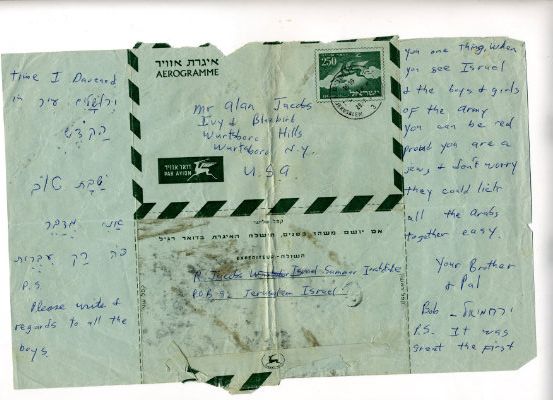 time I Davened
in ירושלים עיר
הקדש
שבת טוב
אני מדבר
פה רק עברית
P.S.
Please write &
regards to all the
boys.
איגרת אוויר
AEROGRAMME
250
ישראל
JERUSALEM
Mr Alan Jacobs
Ivy & Bluebird
Wurtsboro Hills
Wurtsboro N.Y.
USA
דואר אוויר
PAR AVION
אם יושם משהו בפנים, תישלח האיגרת בדואר רגיל
השולח-EXPEDITEUR
R. Jacobs Israel Summer Institute
P.O.B. 92 Jerusalem Israel
you one thing, when
you see Israel
& the boys & girls
of the army
you can be red
proud you are a
jew & don't worry
they could lick
all the Arabs
together easy.
Your Brother
& Pal
Bob – ירחמיאל
P.S. It was
great the first